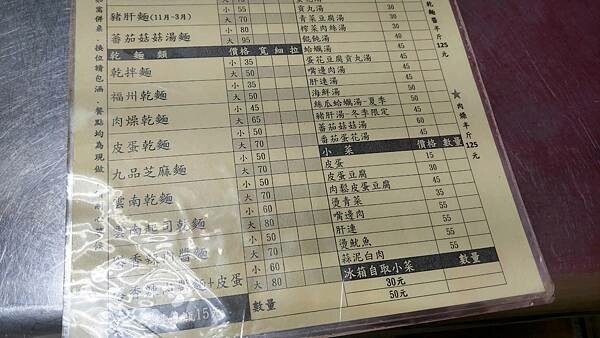 豬肝麵(11月-3月)
小 55
大 70
蕃茄菇菇湯麵
小 80
大 95
乾麵類 價格 寬 細 拉
乾拌麵
小 35
大 50
福州乾麵
小 35
大 50
肉燥乾麵
小 45
大 65
皮蛋乾麵
小 50
大 70
九品芝麻麵
小 50
大 70
雲南乾麵
小 50
大 70
雲南起司乾麵
小 60
大 80
小 50
大 70
+皮蛋
小 60
大 80
15
數量
貢丸湯
青菜豆腐湯
榨菜肉絲湯
餛飩湯
蛤蠣湯
蛋花豆腐貢丸湯
嘴邊肉湯
肝連湯
海鮮湯
絲瓜蛤蠣湯-夏季
豬肝湯-冬季限定
蕃茄菇菇湯
蕃茄蛋花湯
小菜 價格 數量
皮蛋 15
皮蛋豆腐 30
肉鬆皮蛋豆腐
燙青菜
嘴邊肉
肝連
燙魷魚
蒜泥白肉
冰箱自取小菜 數量
30元
50元
乾麵醬半斤125元
★肉燥半斤125元
如需併桌,換位請包涵,餐點均為現做